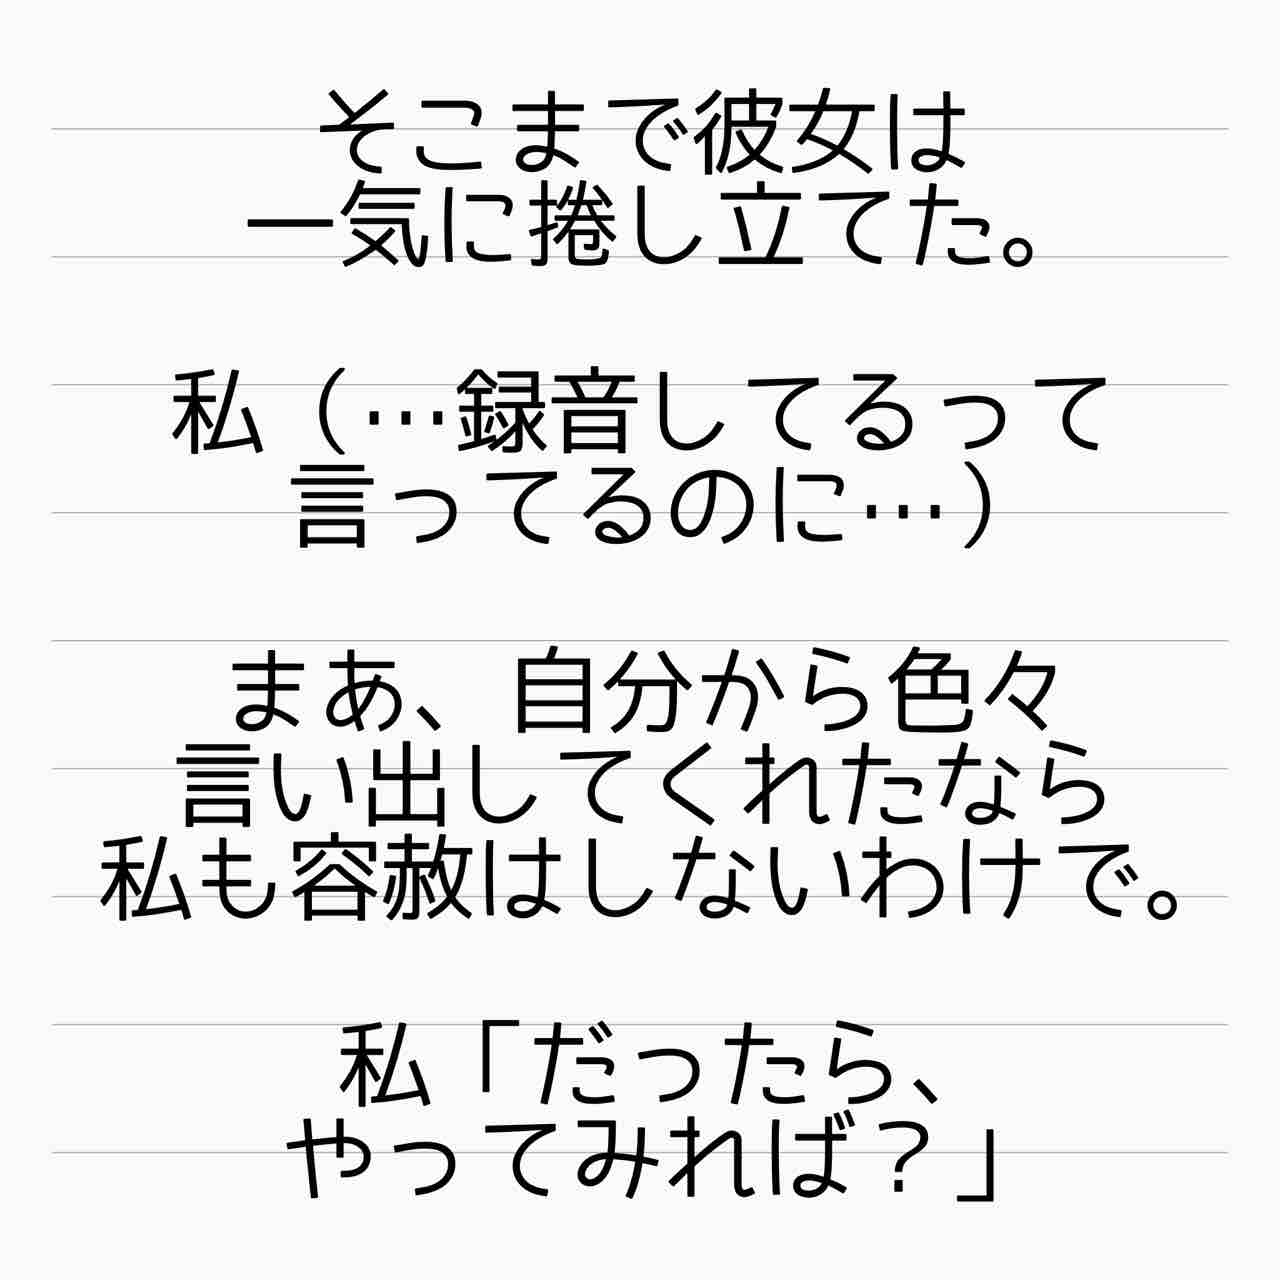 そこまで彼女は
一気に捲し立てた。
私（…録音してるって
言ってるのに…）
まあ、自分から色々
言い出してくれたなら
私も容赦はしないわけで。
私「だったら、
やってみれば？」